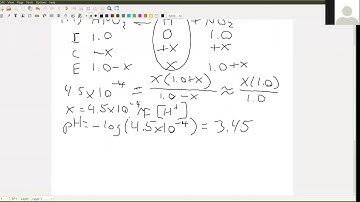 HNO2 ⇌ H+ + NO2-
I 1.0 0 1.0
C -x +x +x
E 1.0-x x 1.0+x
4.5x10^-4 = x(1.0+x)/(1.0-x) ≈ x(1.0)/1.0
x = 4.5x10^-4 M [H+]
pH = -log(4.5x10^-4) = 3.45